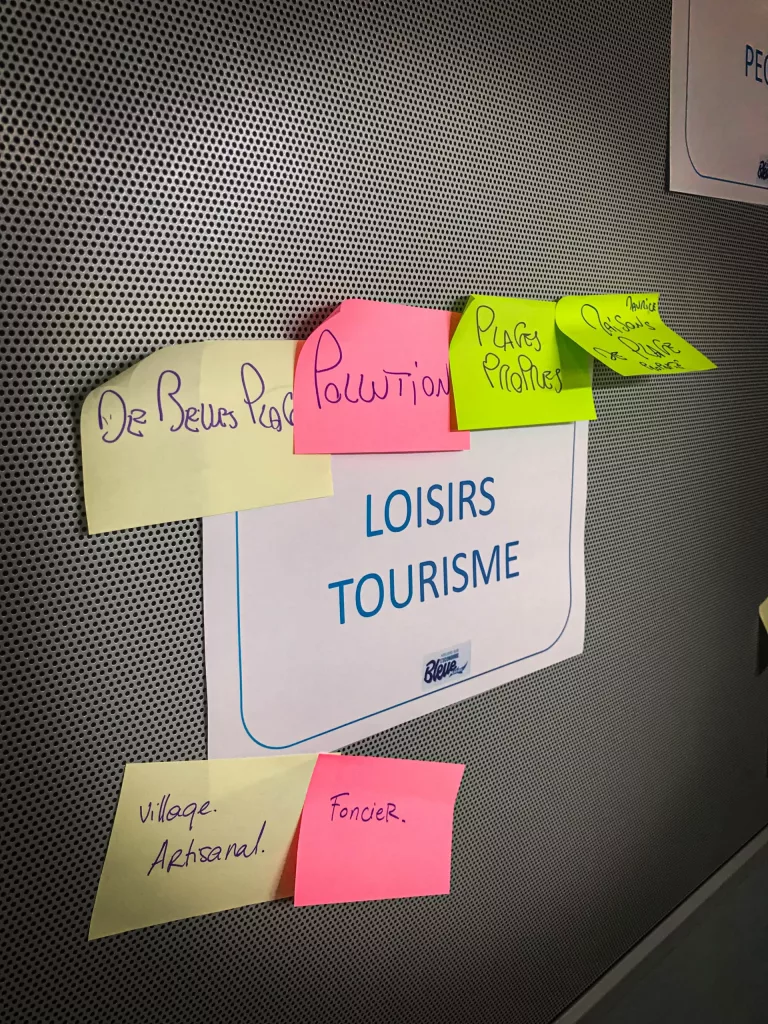 PEC
DE BELLES PLAG
POLLUTION
PLAGES
PROPRES
MAURICE
MAISONS
DE PLAGE
LOISIRS
TOURISME
Bleue
Village.
Artisanal.
FoncieR.